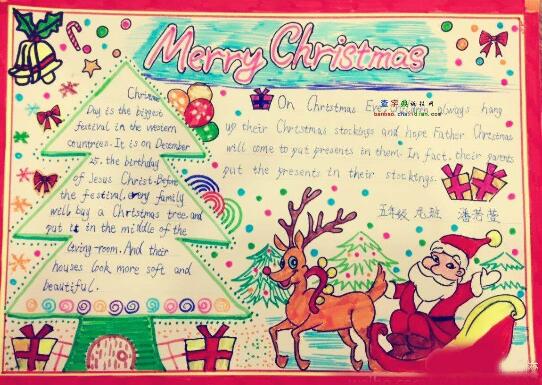 Merry Christmas
Christmas
Day is the biggest
festival in the western
countries. It is on December
25. the birthday
of Jesus Christ. Before
the festival, every family
will buy a Christmas tree and
put it in the middle of the
living-room. And their
houses look more soft and
beautiful.
On Christmas Eve, always hang
up their Christmas stockings and hope Father Christmas
will come to put presents in them. In fact, their parents
put the presents in their stockings.
查字典 手抄报网
banbao.chazidian.com
五年级